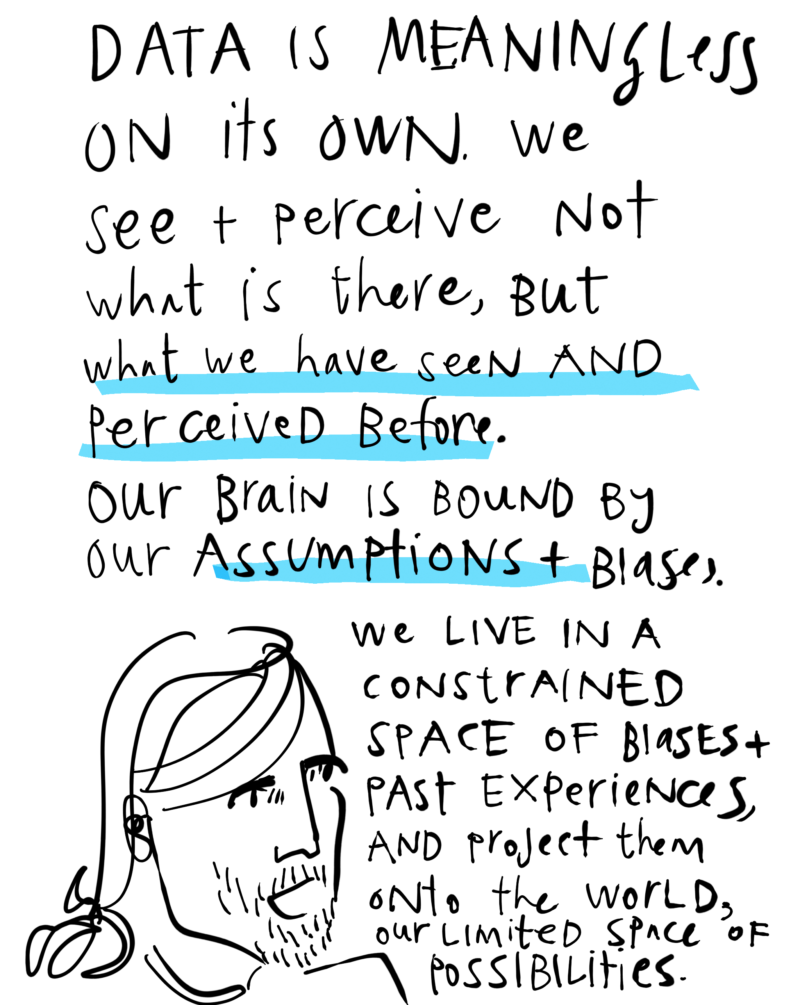 DATA IS MEANINGLESS
ON its OWN. We
see + perceive Not
what is there, But
what we have seeN AND
PerceiveD Before.
our BraiN IS BOUND By
our ASSUMPtiONS + BIases.
We LIVE IN A
CONStrAINED
SPACE OF BIASES +
PASt EXPerieNces,
AND project them
ONto the WORLD,
our LIMiteD SPace OF
POSSIBILities.